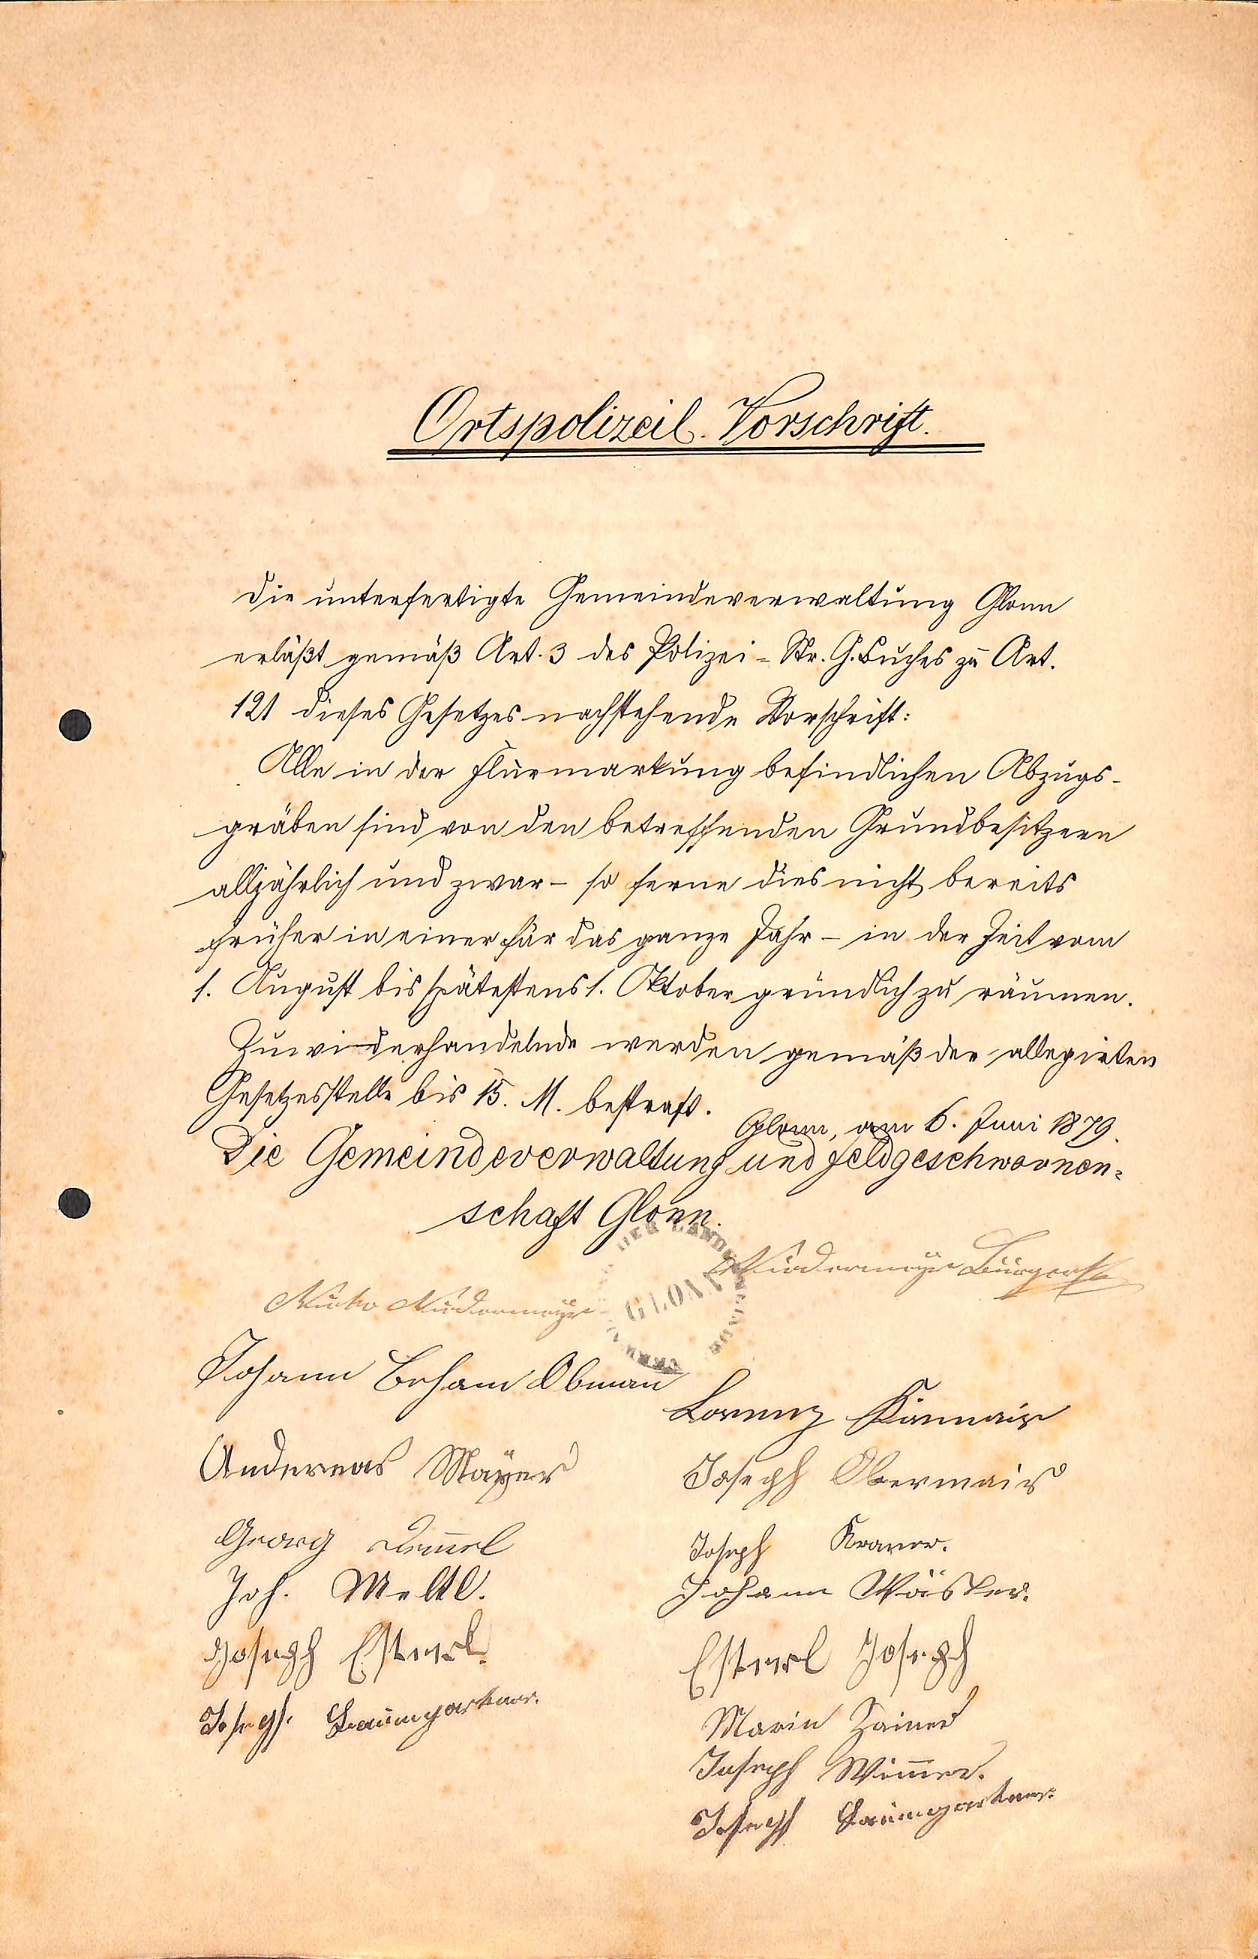 Ortspolizeil. Vorschrift.
Die unterfertigte Gemeindeverwaltung Glonn
erläßt gemäß Art. 3 des Polizei-Str. G. Buches zu Art.
121 dieses Gesetzes nachstehende Vorschrift:
Alle in der Flurmarkung befindlichen Abzugs-
gräben sind von den betreffenden Grundbesitzern
alljährlich und zwar – so ferne dies nicht bereits
früher in einer für das ganze Jahr – in der Zeit vom
1. August bis spätestens 1. Oktober gründlich zu räumen.
Zuwiderhandelnde werden gemäß der allegirten
Gesetzesstelle bis 15. M. bestraft.
Glonn, am 6. Juni 1879.
Die Gemeindeverwaltung und Feldgeschwornen-
schaft Glonn.
GLONN
Niedermayr Bürgerm
Niedermayr
Johann Beham Obman
Lorenz
Andereas Mayer
Joseph Obermair
Georg
Joseph
Joh. Meltl.
Johann
Joseph Esterl.
Esterl Joseph
Joseph Baumgartner.
Zainer
Joseph Wimmer.
Joseph Baumgartner.